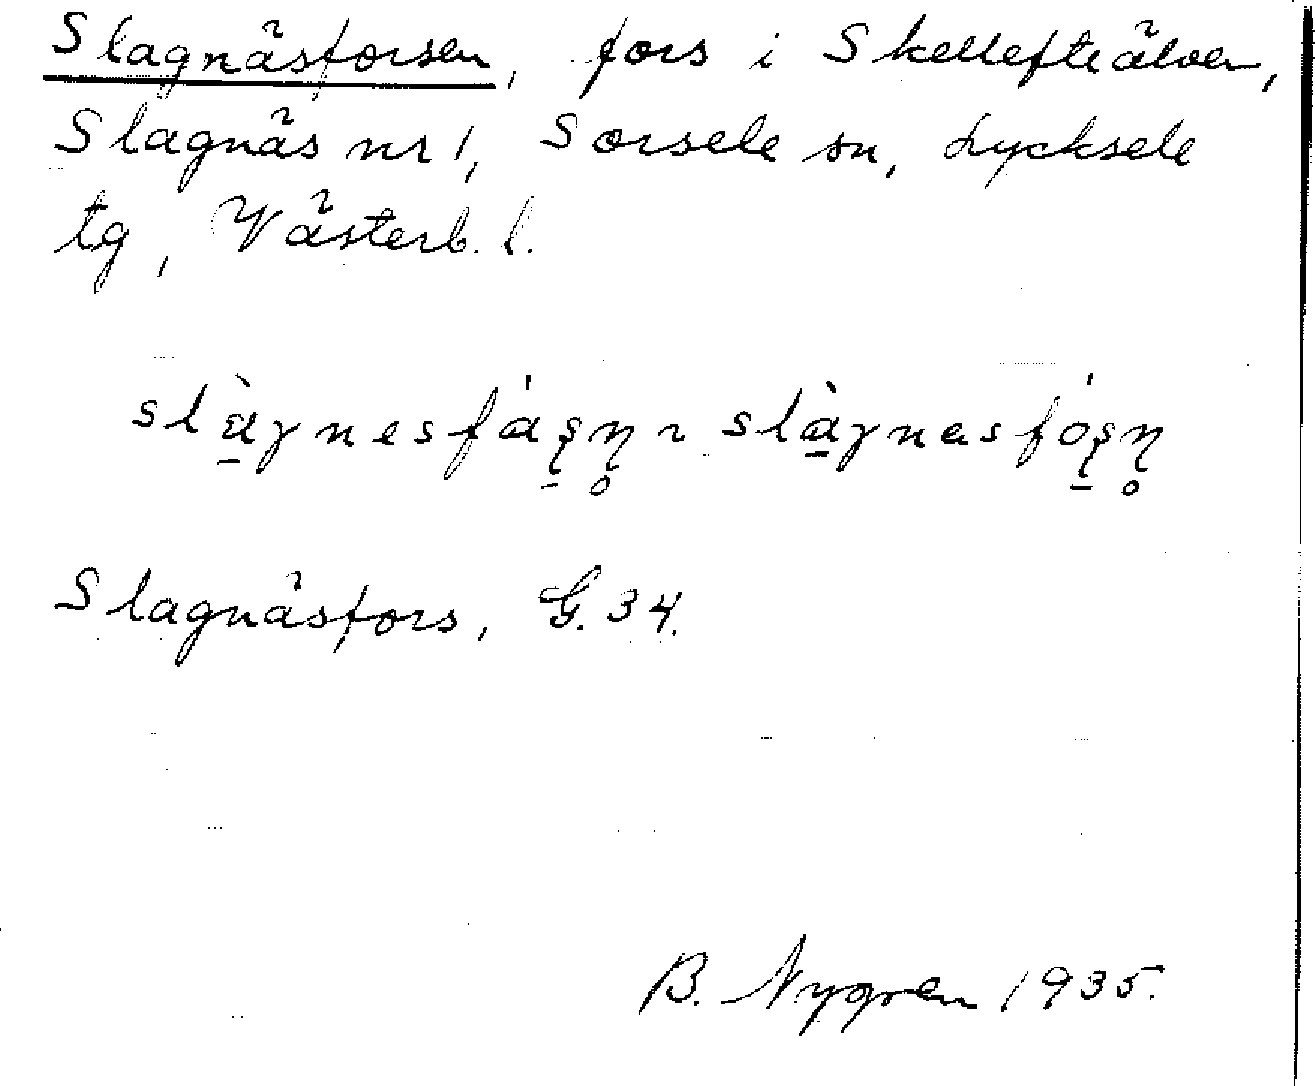 Slagnäsforsen, fors i Skellefteälven,
Slagnäs nr 1, Sorsele sn, Lycksele
tg, Västerb. l.
slàgnesfáʂn̥ ~ slàgnesfóʂn̥
Slagnäsfors, G. 34.
B. Nygren 1935.